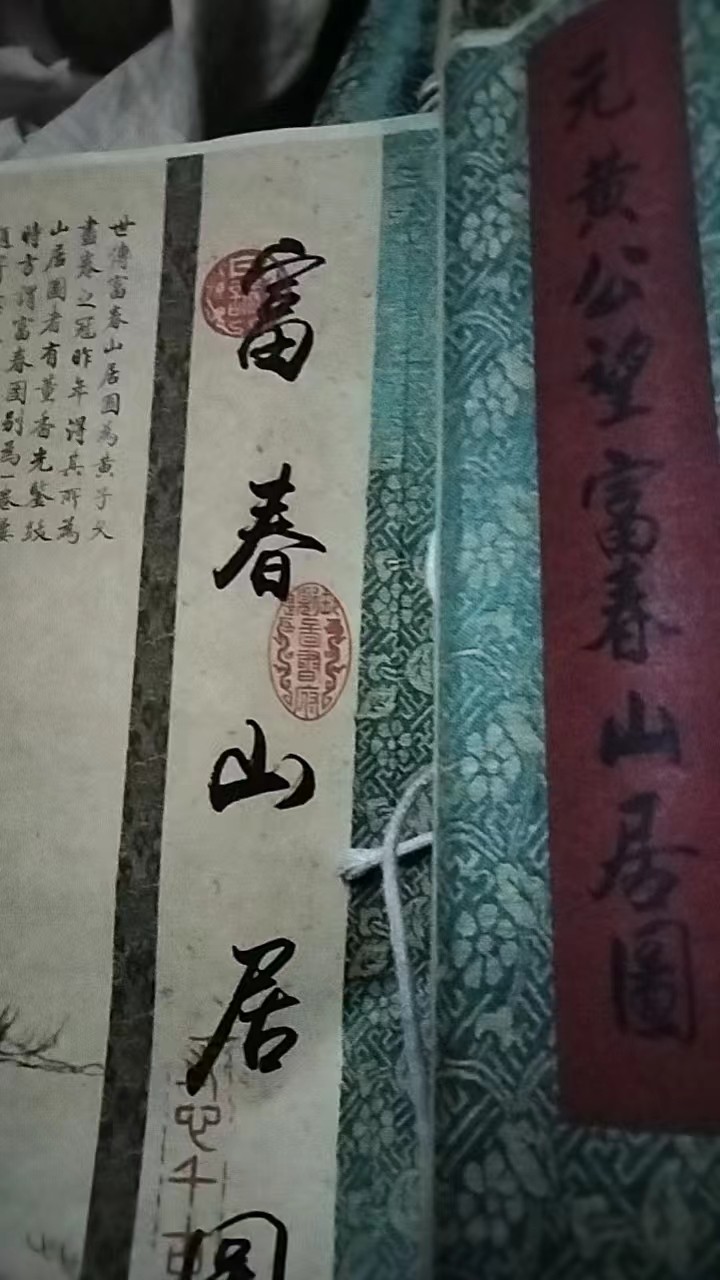 元黃公望富春山居圖
富春山居圖
世傳富春山居圖為黃子久
畫卷之冠昨年得其所為
山居圖者有董香光鑒跋
時方謂富春圖別為一卷